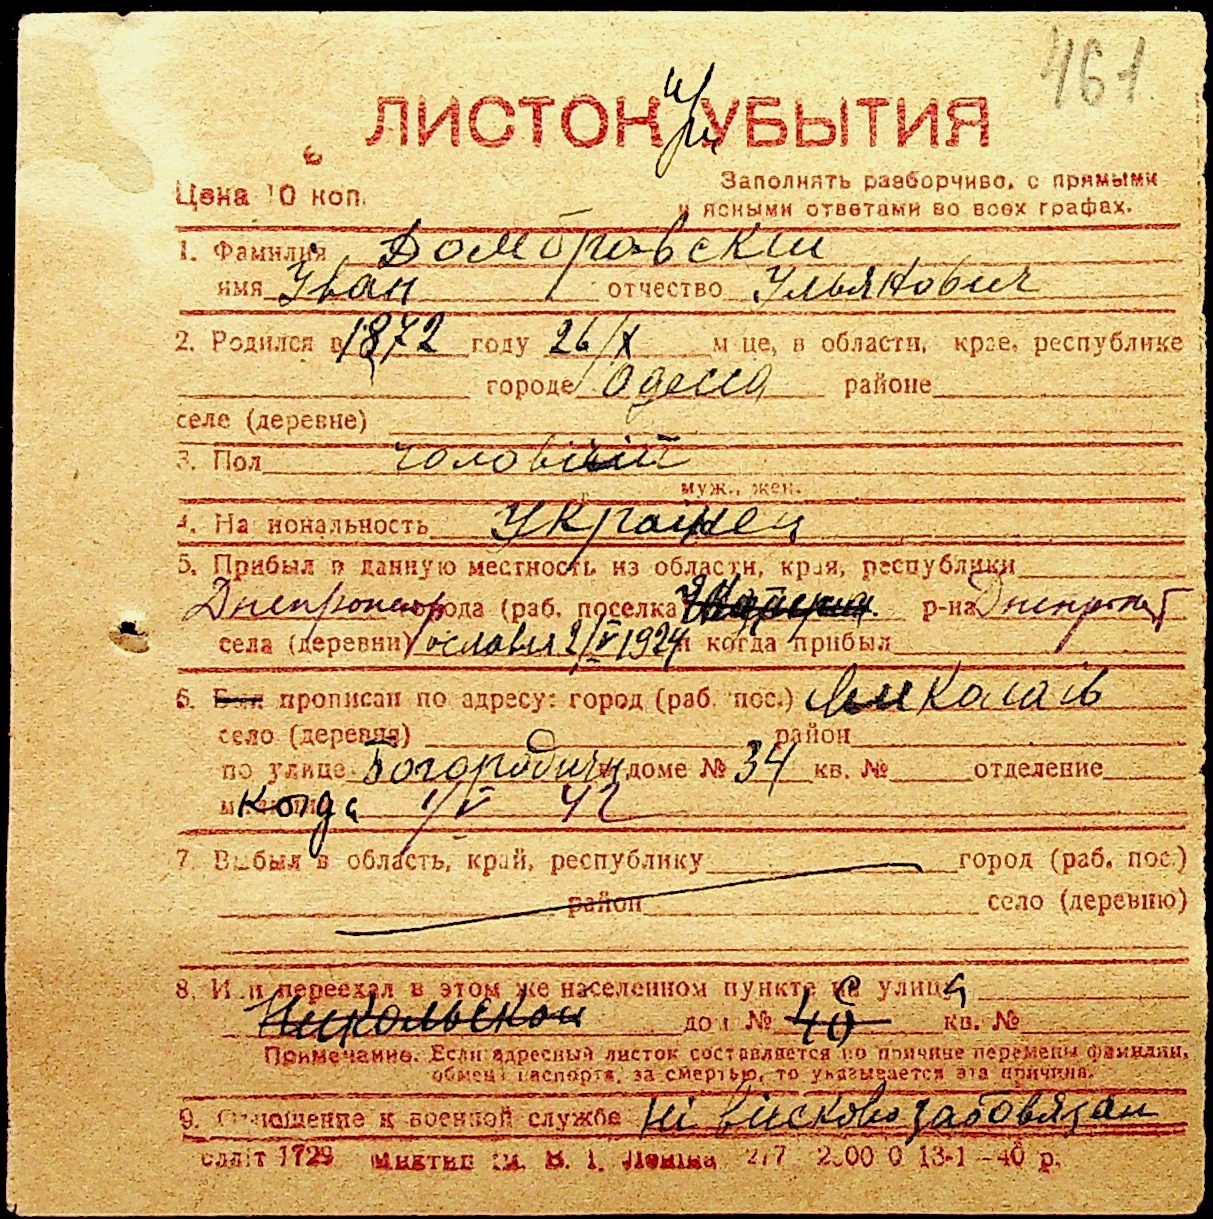 461
ЛИСТОК УБЫТИЯ
Цена 10 коп.
Заполнять разборчиво, с прямыми
и ясными ответами во всех графах.
1. Фамилия Домбровский
имя Иван отчество Ульянович
2. Родился в 1872 году 26/X м-це, в области, крае, республике
городе Одесса районе
селе (деревне)
3. Пол чоловічий
муж., жен.
4. Национальность Украинец
5. Прибыл в данную местность из области, края, республики
Днепропе города (раб. поселка) р-на Днепропет
села (деревни) 2/V 1924 и когда прибыл
6. Был прописан по адресу: город (раб. пос.) Миколаїв
село (деревня) район
по улице Богородичн в доме № 34 кв. № отделение
Когда 1/V 42
7. Выбыл в область, край, республику город (раб. пос.)
район село (деревню)
8. Или переехал в этом же населенном пункте на улицу
Никольской дом № 40 кв. №
Примечание. Если адресный листок составляется по причине перемены фамилии,
обмена паспорта, за смертью, то указывается эта причина.
9. Отношение к военной службе Ні військовозабовязан
1729 им. В. І. Леніна 13-1—40 р.